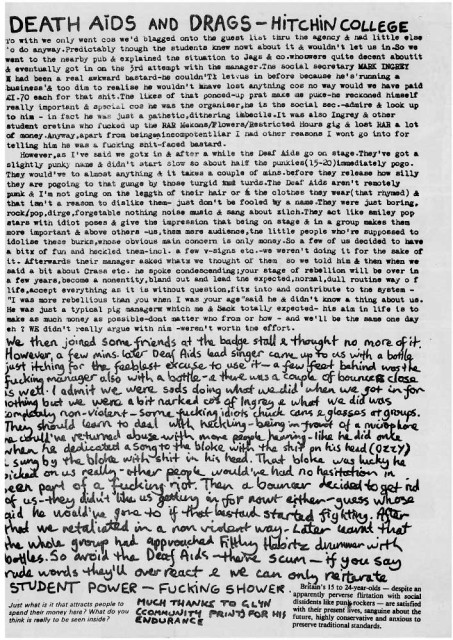 DEATH AIDS AND DRAGS - HITCHIN COLLEGE
To with we only went cos we'd blagged onto the guest list thru the agency & had little else
to do anyway.Predictably though the students knew nowt about it & wouldn't let us in.So we
went to the nearby pub & explained the situation to Jags & co.whowere quite decent aboutit
& eventually got in on the 3rd attempt with the manager.The social secretary MARK INGREY
had been a real awkward bastard-he couldn't let us in before because he's'running a
business'& too dim to realise he wouldn't have lost anything cos no way would we have paid
£1.70 each for that shit.The likes of that ponced-up prat make us puke-he reckoned himself
really important & special cos he was the organiser,he is the social sec.-admire & look up
to him - in fact he was just a pathetic,dithering imbecile.It was also Ingrey & other
student cretins who fucked up the RAR Mekons/Flowers/Restricted Hours gig & lost RAR a lot
of money.Anyway,apart from being incompotent liar I had other reasons I wont go into for
telling him he was a fucking shit-faced bastard.
However,as I've said we gotx in & after a while the Deaf Aids go on stage.They've got a
slightly punky name & didn't start slow so about half the punkies(15-20)immediately pogo.
They would've to almost anything & it takes a couple of mins.before they release how silly
they are pogoing to that gunge by those turgid mxd turds.The Deaf Aids aren't remotely
punk & I'm not going on the length of their hair or the clothes they wear(that rhymed) &
that isn't a reason to dislike them- just don't be fooled by a name.They were just boring,
rock/pop,dirge,forgetable nothing noise music & sang about zilch.They act like smiley pop
stars with idiot poses & give the impression that bring on stage & in a group makes them
more important & above others -us,them mere audience,the little people who're supposed to
idolise these burks,whose obvious main concern is only money.So a few of us decided to have
a bitx of fun and heckled them-incl. a few v-signs etc.-we weren't doing it for the sake of
it. Afterwards their manager asked whatx we thought of them so we told him & then when we
said a bit about Crass etc. he spoke condescendingly;your stage of rebellion will be over in
a few years,become a nonentity,bland out and lead the expected,normal,dull routine way of
life,accept everything as it is without question,fitx into and contribute to the system -
"I was more rebellious than you when I was your age"said he & didn't know a thing about us.
He was just a typical pig managerx which me & Seck totally detested- his aim in life is to
make as much money as possible-dont matter who from or how - and we'll be the same one day
eh ? WE didn't really argue with him -weren't worth the effort.
We then joined some friends at the badge stall & thought no more of it.
However, a few mins. later Deaf Aids lead singer came up to us with a bottle
just itching for the feeblest excuse to use it - a few feet behind was the
fucking manager also with a bottle - & there was a couple of bouncers close
as well. I admit we were sods doing what we did when we got in for
nothing but we were a bit narked cos of Ingrey & what we did was
completely non-violent - some fucking idiots chuck cans & glasses at groups.
They should learn to deal with heckling - being in front of a microphone
he could've returned abuse with more people hearing - like he did once
when he dedicated a song to the bloke with the shit on his head (OZZY)
& sung by the bloke with shit in his head. That bloke was lucky he
picked on us really - other people would've had no hesitation in
been part of a fucking riot. Then a bouncer decided to get rid
of us - they didn't like us getting in for nowt either - guess whose
aid he would've gone to if that bastard started fighting. After
that we retaliated in a non violent way. Later learnt that
the whole group had approached Filthy Habitz drummer with
bottles. So avoid the Deaf Aids - they're scum - if you say
rude words they'll over react & we can only reiterate
STUDENT POWER - FUCKING SHOWER.
Just what is it that attracts people to
spend their money here? What do you
think is really to be seen inside?
MUCH THANKS TO GLYN
(COMMUNITY PRINT) FOR HIS
ENDURANCE
Britain's 15 to 24-year-olds — despite an
apparently perverse flirtation with social
dissidents like punk rockers — are satisfied
with their present lives, sanguine about the
future, highly conservative and anxious to
preserve traditional standards.